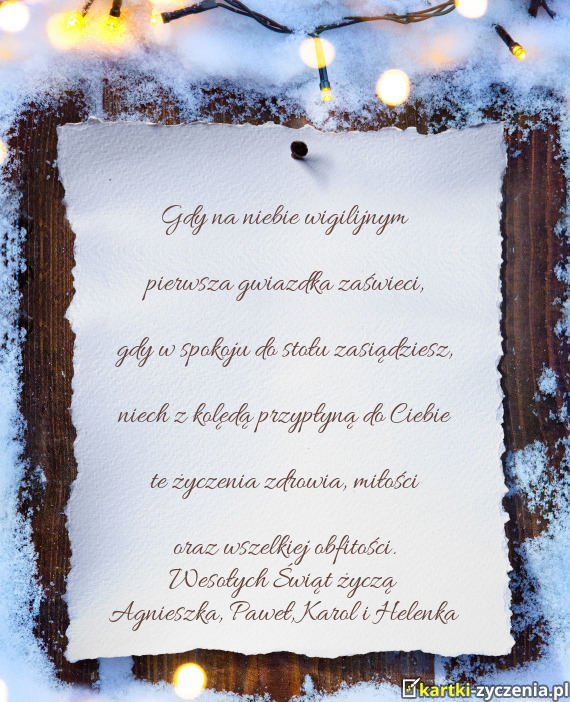 Gdy na niebie wigilijnym
pierwsza gwiazdka zaświeci,
gdy w spokoju do stołu zasiądziesz,
niech z kolędą przypłyną do Ciebie
te życzenia zdrowia, miłości
oraz wszelkiej obfitości.
Wesołych Świąt życzą
Agnieszka, Paweł,Karol i Helenka
kartki-zyczenia.pl